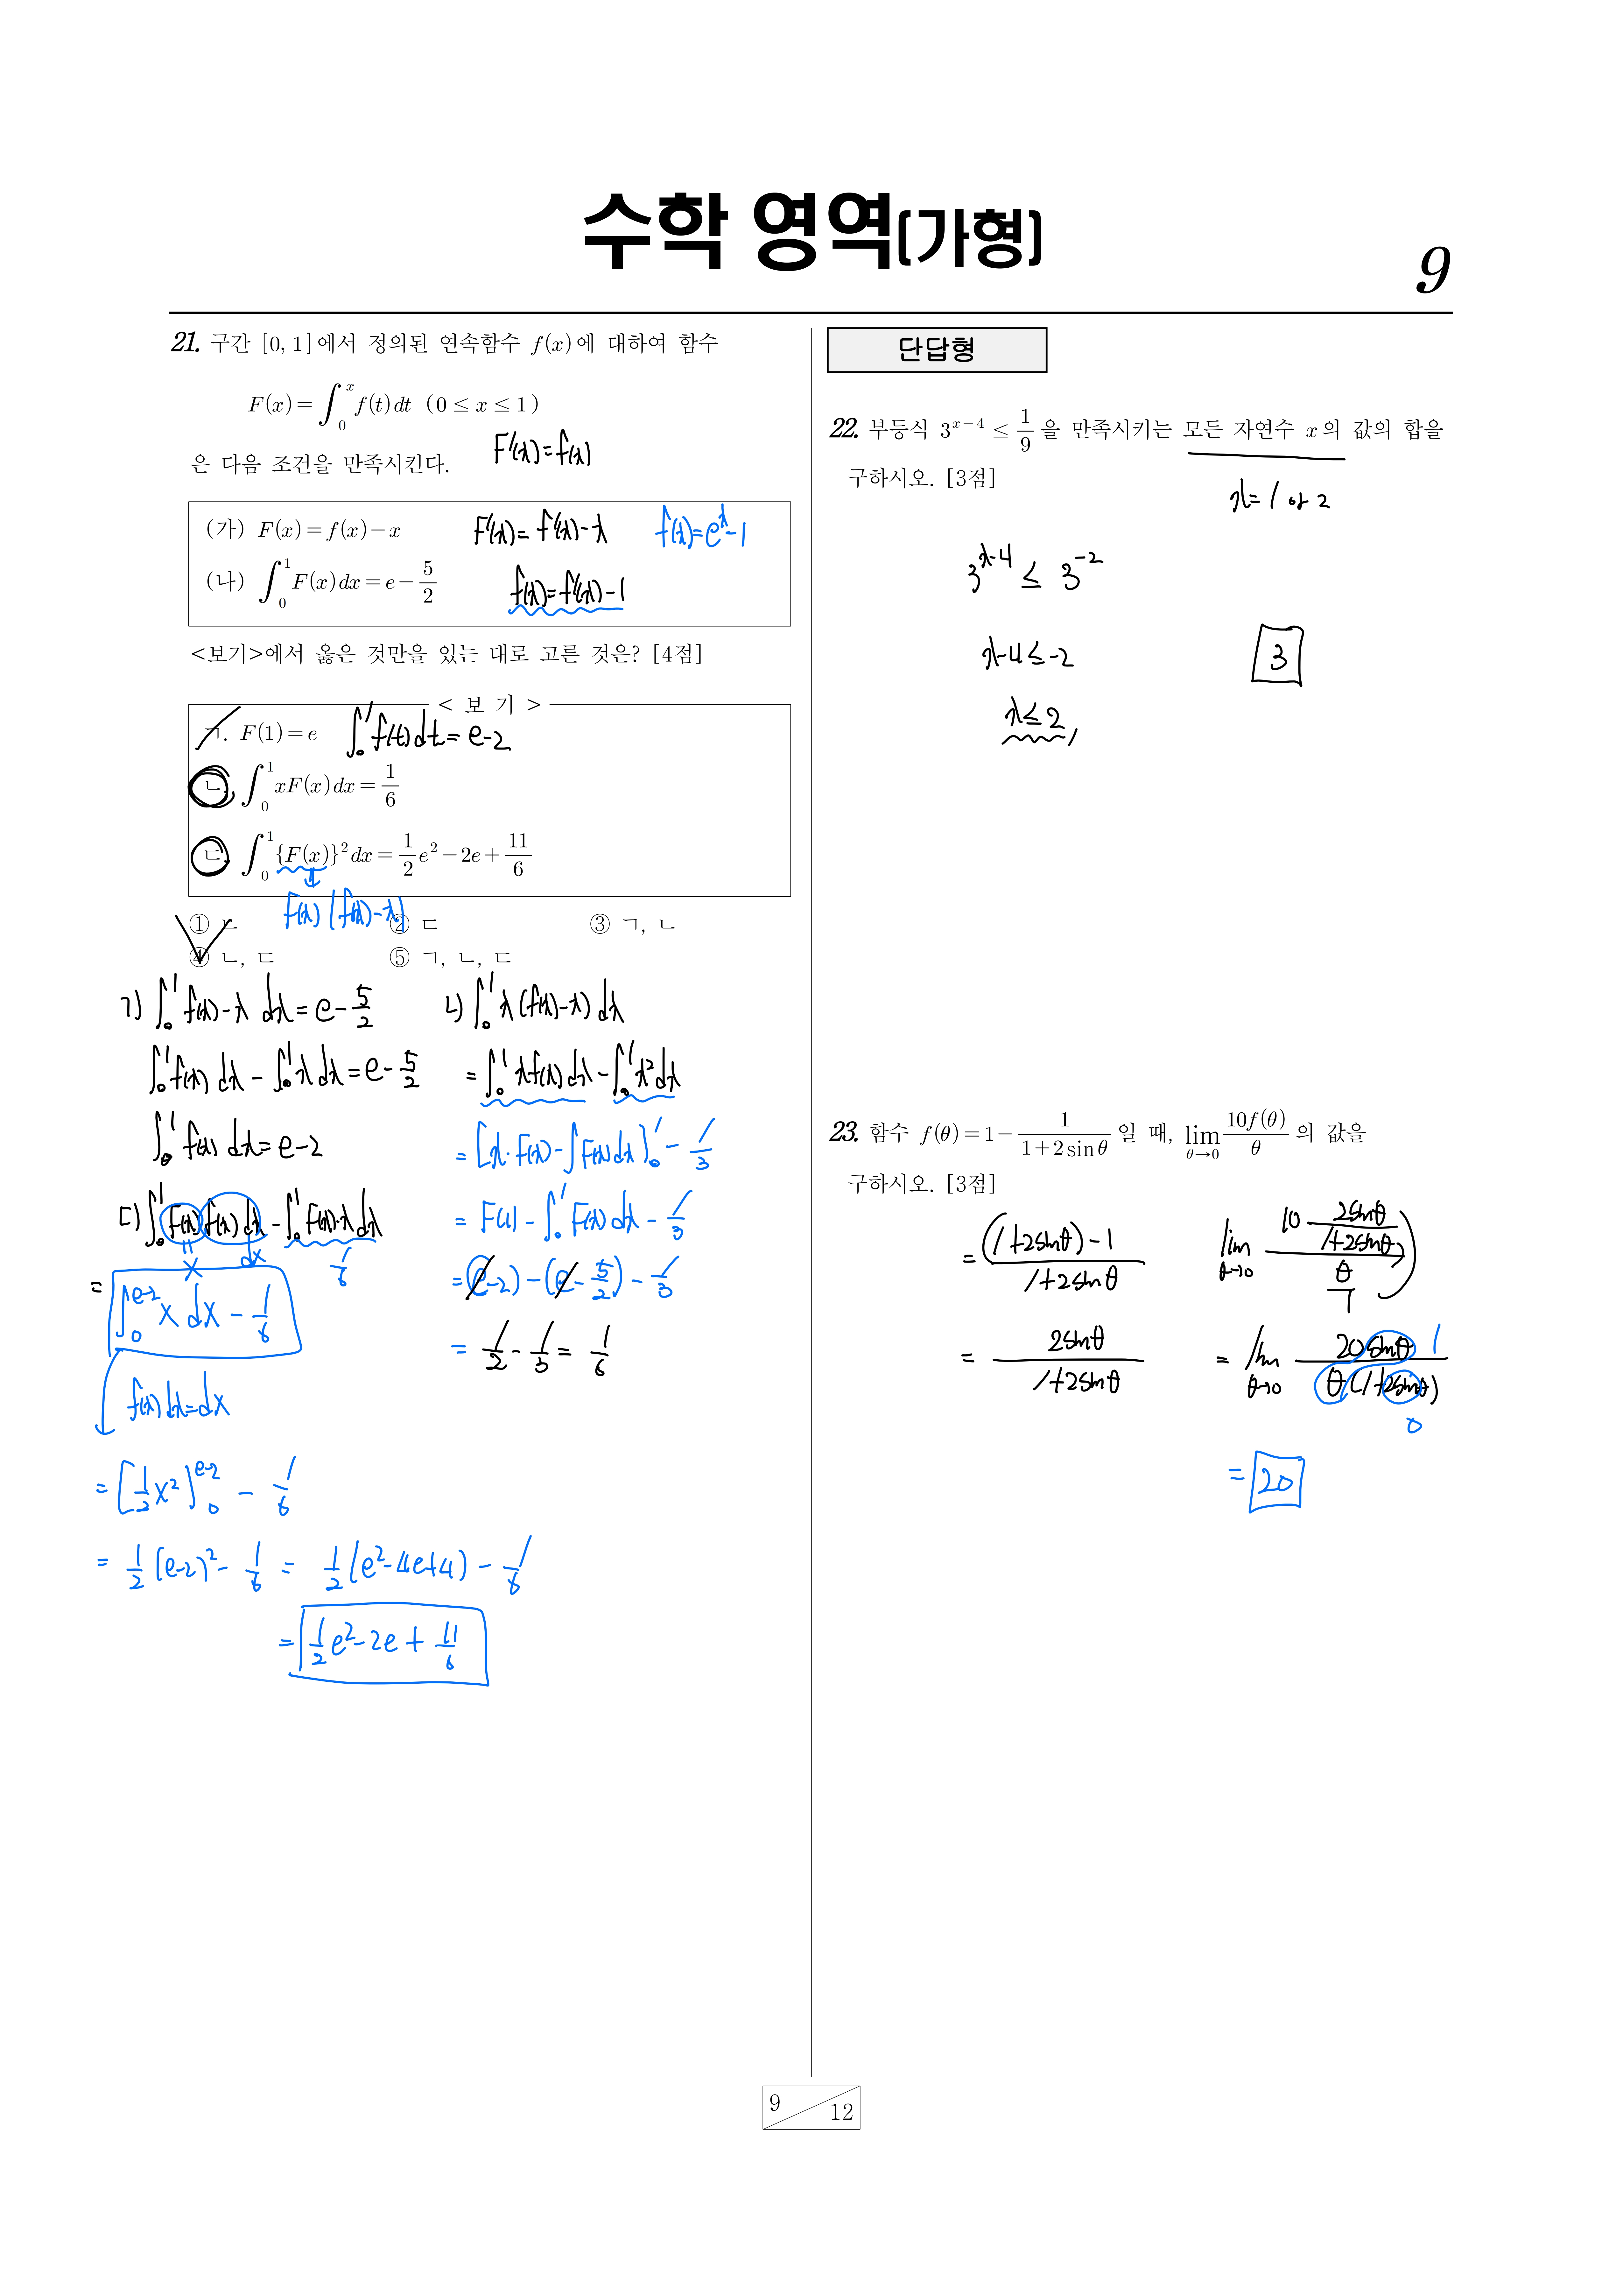 수학 영역(가형)
9
21. 구간 [0, 1]에서 정의된 연속함수 f(x)에 대하여 함수
F(x)=∫₀ˣ f(t)dt (0≤x≤1)
F'(x)=f(x)
은 다음 조건을 만족시킨다.
(가) F(x)=f(x)−x
F'(x)=f'(x)-x
f(x)=e^x-1
(나) ∫₀¹F(x)dx=e−5/2
f(x)=f'(x)-1
<보기>에서 옳은 것만을 있는 대로 고른 것은? [4점]
< 보 기 >
ㄱ. F(1)=e
∫₀¹ f(t)dt=e-2
ㄴ. ∫₀¹xF(x)dx=1/6
ㄷ. ∫₀¹{F(x)}²dx=1/2e²−2e+11/6
F(x)(f(x)-x)
① ㄴ ② ㄷ ③ ㄱ, ㄴ
④ ㄴ, ㄷ ⑤ ㄱ, ㄴ, ㄷ
ㄱ) ∫₀¹ f(x)-x dx=e-5/2
∫₀¹f(x) dx - ∫₀¹x dx=e-5/2
∫₀¹ f(x) dx=e-2
ㄴ) ∫₀¹ x(f(x)-x) dx
=∫₀¹ xf(x)dx-∫₀¹x²dx
=[x·F(x)-∫F(x)dx]₀¹-1/3
=F(1)-∫₀¹F(x)dx-1/3
=(e-2)-(e-5/2)-1/3
=1/2-1/3=1/6
ㄷ) ∫₀¹F(x)f(x)dx-∫₀¹F(x)·x dx
X
dX
1/6
=∫₀^(e-2) X dX-1/6
f(x)dx=dX
=[1/2X²]₀^(e-2) - 1/6
=1/2(e-2)²-1/6=1/2(e²-4e+4)-1/6
=1/2e²-2e+11/6
단답형
22. 부등식 3^(x−4)≤1/9을 만족시키는 모든 자연수 x의 값의 합을
구하시오. [3점]
x=1 or 2
3^(x-4)≤3^(-2)
x-4≤-2
3
x≤2
23. 함수 f(θ)=1−1/(1+2sinθ)일 때, lim(θ→0) 10f(θ)/θ의 값을
구하시오. [3점]
=((1+2sinθ)-1)/(1+2sinθ)
=2sinθ/(1+2sinθ)
lim(θ→0) (10·2sinθ/(1+2sinθ))/(θ/1)
=lim(θ→0) 20sinθ/(θ(1+2sinθ))
1
0
=20
9
12